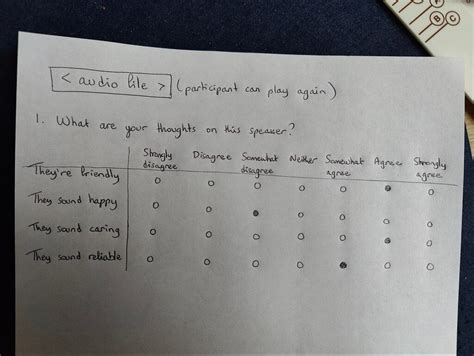 < audio file > (participant can play again)
1. What are your thoughts on this speaker?
Strongly disagree Disagree Somewhat disagree Neither Somewhat agree Agree Strongly agree
They're friendly
They sound happy
They sound caring
They sound reliable
B C